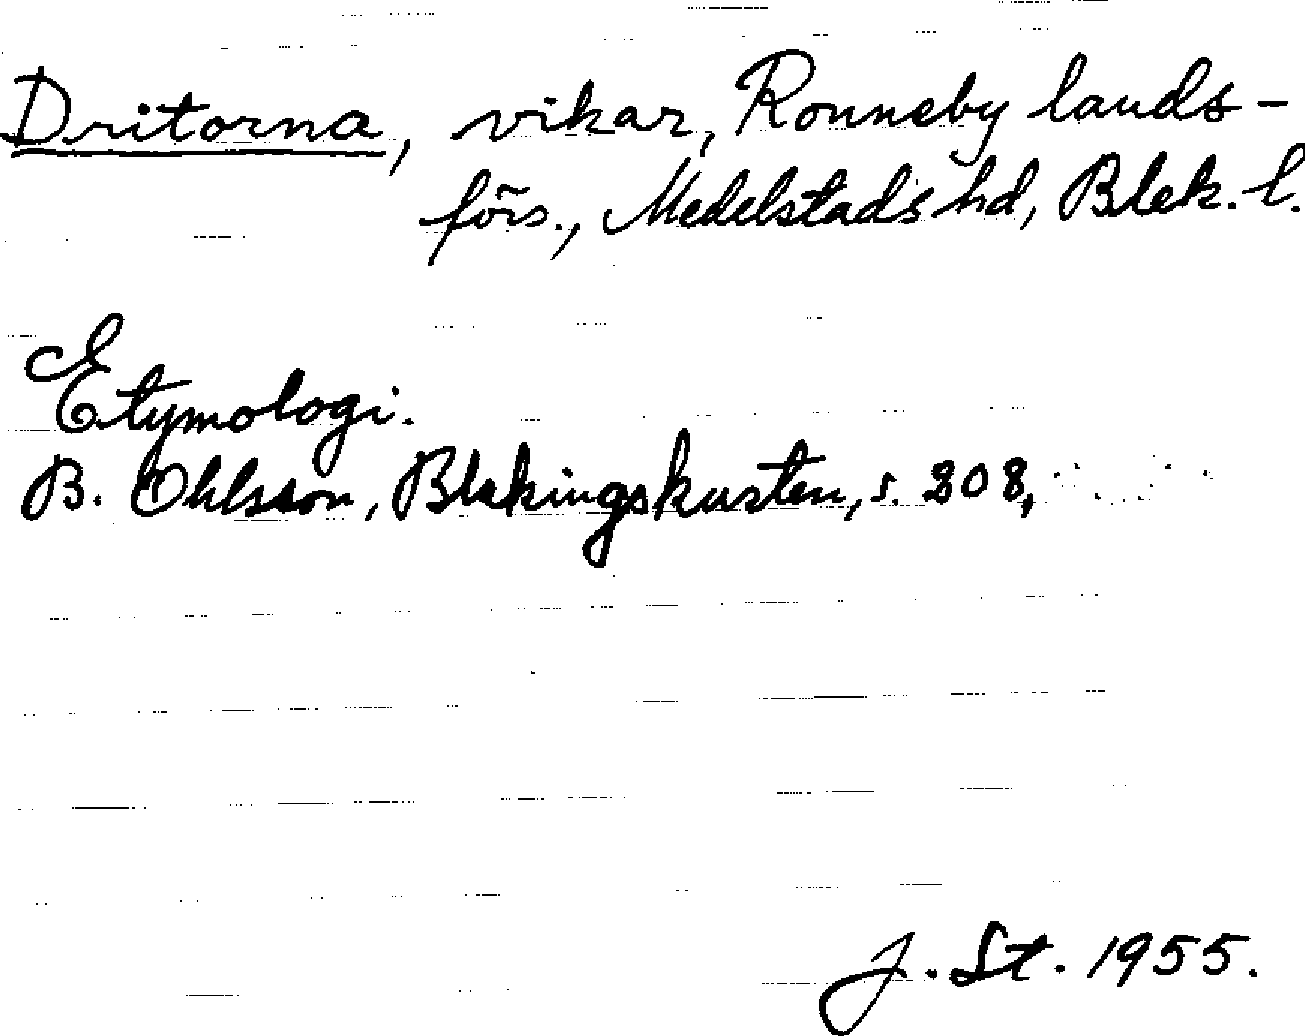 Dritorna, vikar, Ronneby lands-
förs., Medelstads hd, Blek. l.
Etymologi.
B. Ohlsson, Blekingskusten, s. 208,
J. St. 1955.